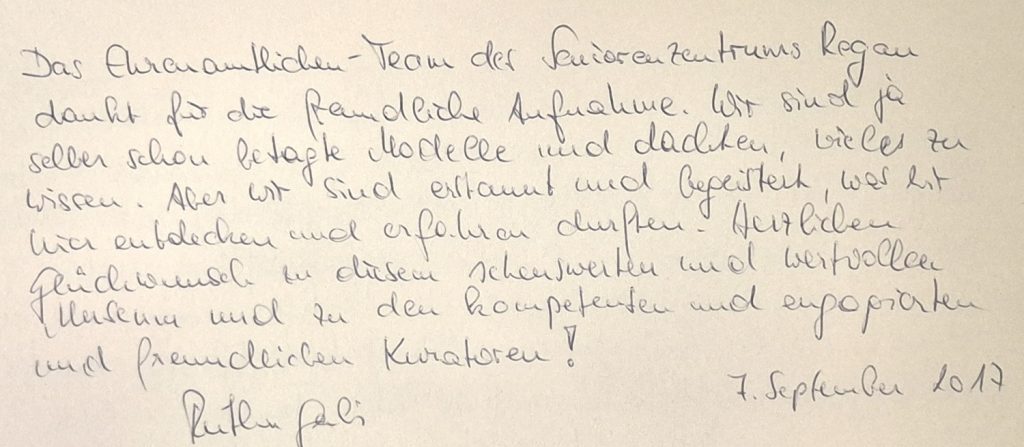 Das Ehrenamtlichen-Team des Seniorenzentrums Regan
dankt für die freundliche Aufnahme. Wir sind ja
selber schon betagte Modelle und dachten, vieles zu
wissen. Aber wir sind erstaunt und begeistert, was wir
hier entdecken und erfahren durften. Herzlichen
Glückwunsch zu diesem sehenswerten und wertvollen
Museum und zu den kompetenten und engagierten
und freundlichen Kuratoren!
7. September 2017